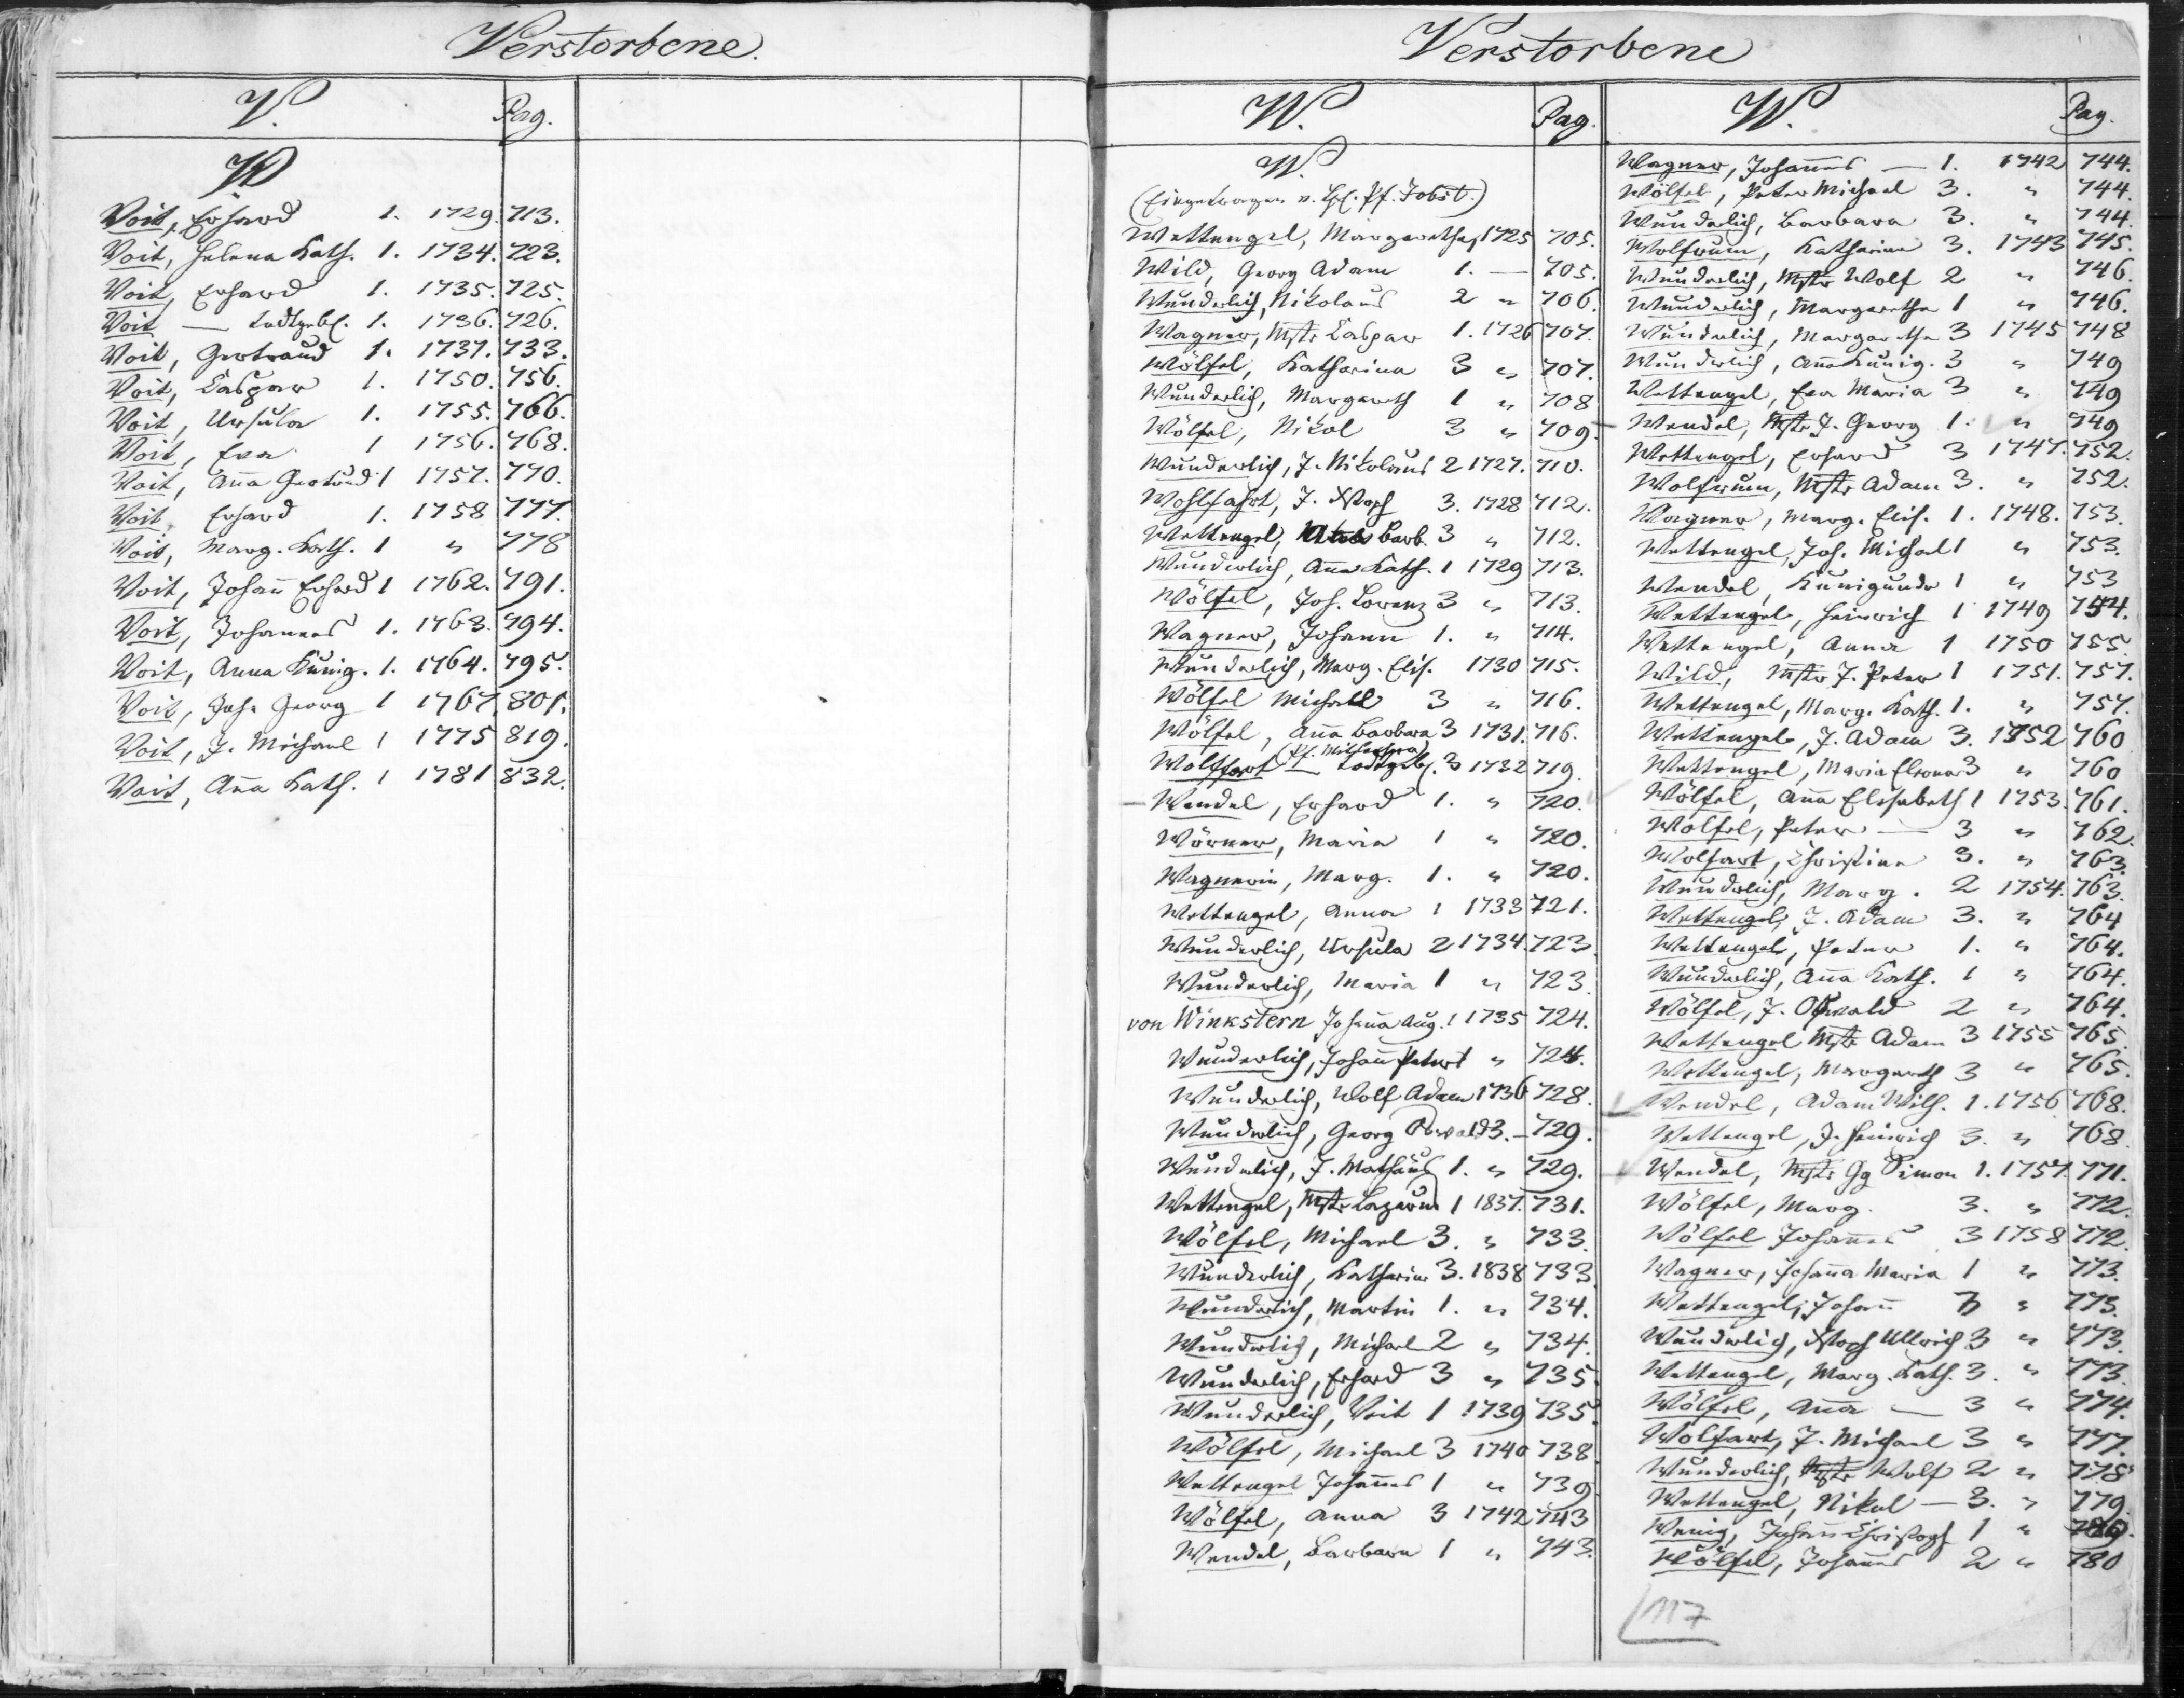 Verstorbene.
V. Pag.
W
Voit, Erhard 1. 1729. 713.
Voit, Helena Kath. 1. 1734. 723.
Voit, Erhard 1. 1735. 725.
Voit — todtgeb. 1. 1736. 726.
Voit, Gertraud 1. 1737. 733.
Voit, Caspar 1. 1750. 756.
Voit, Ursula 1. 1755. 766.
Voit, Eva 1 1756. 768.
Voit, Aña Gertrud 1 1757. 770.
Voit, Erhard 1. 1758 777.
Voit, Marg. Kath. 1 " 778
Voit, Johañ Erhard 1 1762. 791.
Voit, Johannes 1. 1763. 794.
Voit, Anna Kunig. 1. 1764. 795.
Voit, Joh. Georg 1 1767. 801.
Voit, J. Michael 1 1775 819.
Voit, Aña Kath. 1 1781 832.
Verstorbene
W. Pag.
W.
(Eingetragen v. Pf. Jobst.)
Wettengel, Margaretha 1 1725 705.
Wild, Georg Adam 1. — 705.
Wunderlich, Nikolaus 2 " 706
Wagner, Mstr Caspar 1. 1726 707.
Wölfel, Katharina 3 " 707.
Wunderlich, Margareth 1 " 708
Wölfel, Nikol 3 " 709
Wunderlich, J. Nikolaus 2 1727. 710.
Wohlfahrt, J. Xstoph 3. 1728 712.
Wettengel, Barb. 3 " 712.
Wunderlich, Aña Kath. 1 1729 713.
Wölfel, Joh. Lorenz 3 " 713.
Wagner, Johann 1. " 714.
Wunderlich, Marg. Elis. 1730 715.
Wölfel Michael 3 " 716.
Wölfel, Aña Barbara 3 1731. 716.
Wolffart — todtgeb. 3 1732 719.
— Wendel, Erhard 1. " 720.
Wörner, Maria 1 " 720.
Wagnerin, Marg. 1. " 720.
Wettengel, Anna 1 1733 721.
Wunderlich, Ursula 2 1734. 723
Wunderlich, Maria 1 " 723
von Winkstern Johaña Aug. 1 1735 724.
Wunderlich, Johañ Peter 1 " 724.
Wunderlich, Wolf Adam 1736 728.
Wunderlich, Georg Oswald 3. — 729.
Wunderlich, J. Mathäus 1. " 729.
Wettengel, Mstr Lazarus 1 1837. 731.
Wölfel, Michael 3. " 733.
Wunderlich, Katharina 3. 1838 733
Wunderlich, Martin 1. " 734.
Wunderlich, Michael 2 " 734.
Wunderlich, Erhard 3 " 735
Wunderlich, Veit 1 1739 735.
Wölfel, Michael 3 1740 738
Wettengel Johañes 1 " 739
Wölfel, Anna 3 1742 743
Wendel, Barbara 1 " 743.
W. Pag.
Wagner, Johañes — 1. 1742 744.
Wölfel, Peter Michael 3. " 744.
Wunderlich, Barbara 3. " 744.
Wolfrum, Katharina 3. 1743 745.
Wunderlich, Mstr Wolf 2 " 746.
Wunderlich, Margaretha 1 " 746.
Wunderlich, Margaretha 3 1745 748
Wunderlich, Aña Kunig. 3 " 749
Wettengel, Eva Maria 3 " 749
— Wendel, Mstr J. Georg 1. " 749
Wettengel, Erhard 3 1747. 752.
Wolfrum, Mstr Adam 3. " 752.
Wagner, Marg. Elis. 1. 1748. 753.
Wettengel, Joh. Michael 1 " 753.
Wendel, Kunigunda 1 " 753
Wettengel, Heinrich 1 1749 754.
Wettengel, Anna 1 1750 755.
Wild, Mstr J. Peter 1 1751. 757.
Wettengel, Marg. Kath. 1. " 757.
Wettengel, J. Adam 3. 1752 760
Wettengel, Maria Eleonor 3 " 760
Wölfel, Aña Elisabeth 1 1753. 761.
Wölfel, Peter — 3 " 762.
Wolfart, Christina 3. " 763.
Wunderlich, Marg. 2 1754. 763.
Wettengel, J. Adam 3. " 764
Wettengel, Peter 1. " 764.
Wunderlich, Aña Kath. 1 " 764.
Wölfel, J. Oswald 2 " 764.
Wettengel Mstr Adam 3 1755 765.
Wettengel, Margareth 3 " 765.
Wendel, Adam Wilh. 1. 1756 768.
Wettengel, J. Heinrich 3. " 768.
Wendel, Mstr Gg Simon 1. 1757. 771.
Wölfel, Marg. 3. " 772.
Wölfel Johannes 3 1758 772.
Wagner, Johaña Maria 1 " 773.
Wettengel, Johañ 3 " 773.
Wunderlich, Xstoph Ullrich 3 " 773.
Wettengel, Marg. Kath. 3. " 773.
Wölfel, Aña — 3 " 774.
Wolfart, J. Michael 3 " 777.
Wunderlich, Mstr Wolf 2 " 778
Wettengel, Nikol — 3. " 779.
Wenig, Johañ Christoph 1 "
Wölfel, Johañes 2 " 780
117